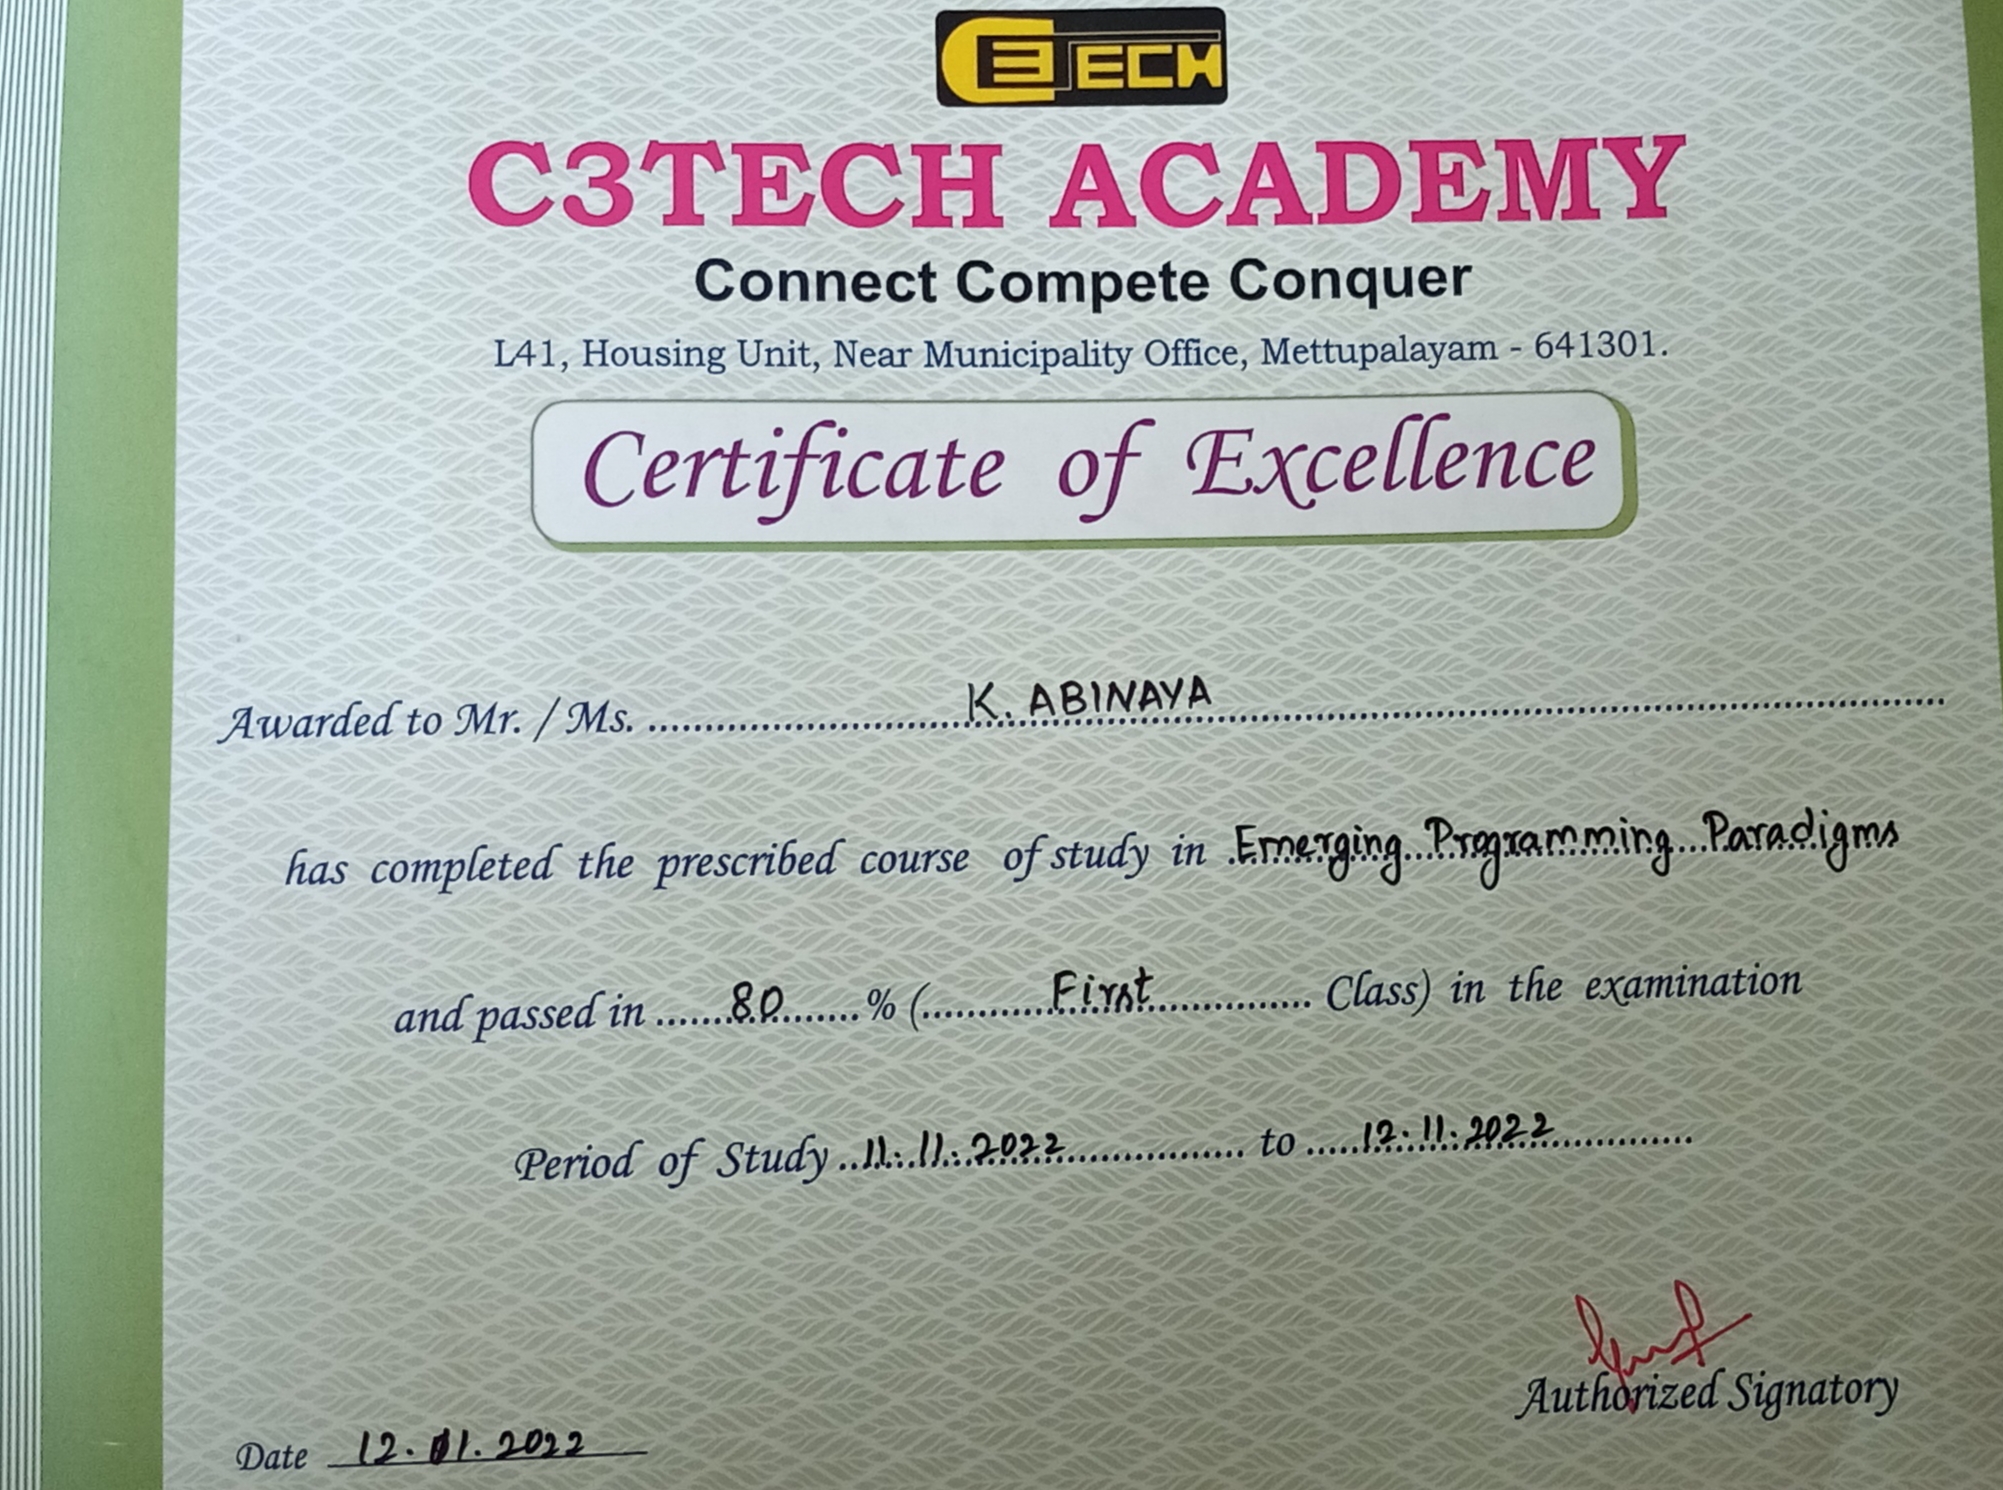 C3TECH
C3TECH ACADEMY
Connect Compete Conquer
L41, Housing Unit, Near Municipality Office, Mettupalayam - 641301.
Certificate of Excellence
Awarded to Mr. / Ms. K. ABINAYA
has completed the prescribed course of study in Emerging Programming Paradigms
and passed in 80 % (First Class) in the examination
Period of Study 11.11.2022 to 12.11.2022
Authorized Signatory
Date 12. 11. 2022